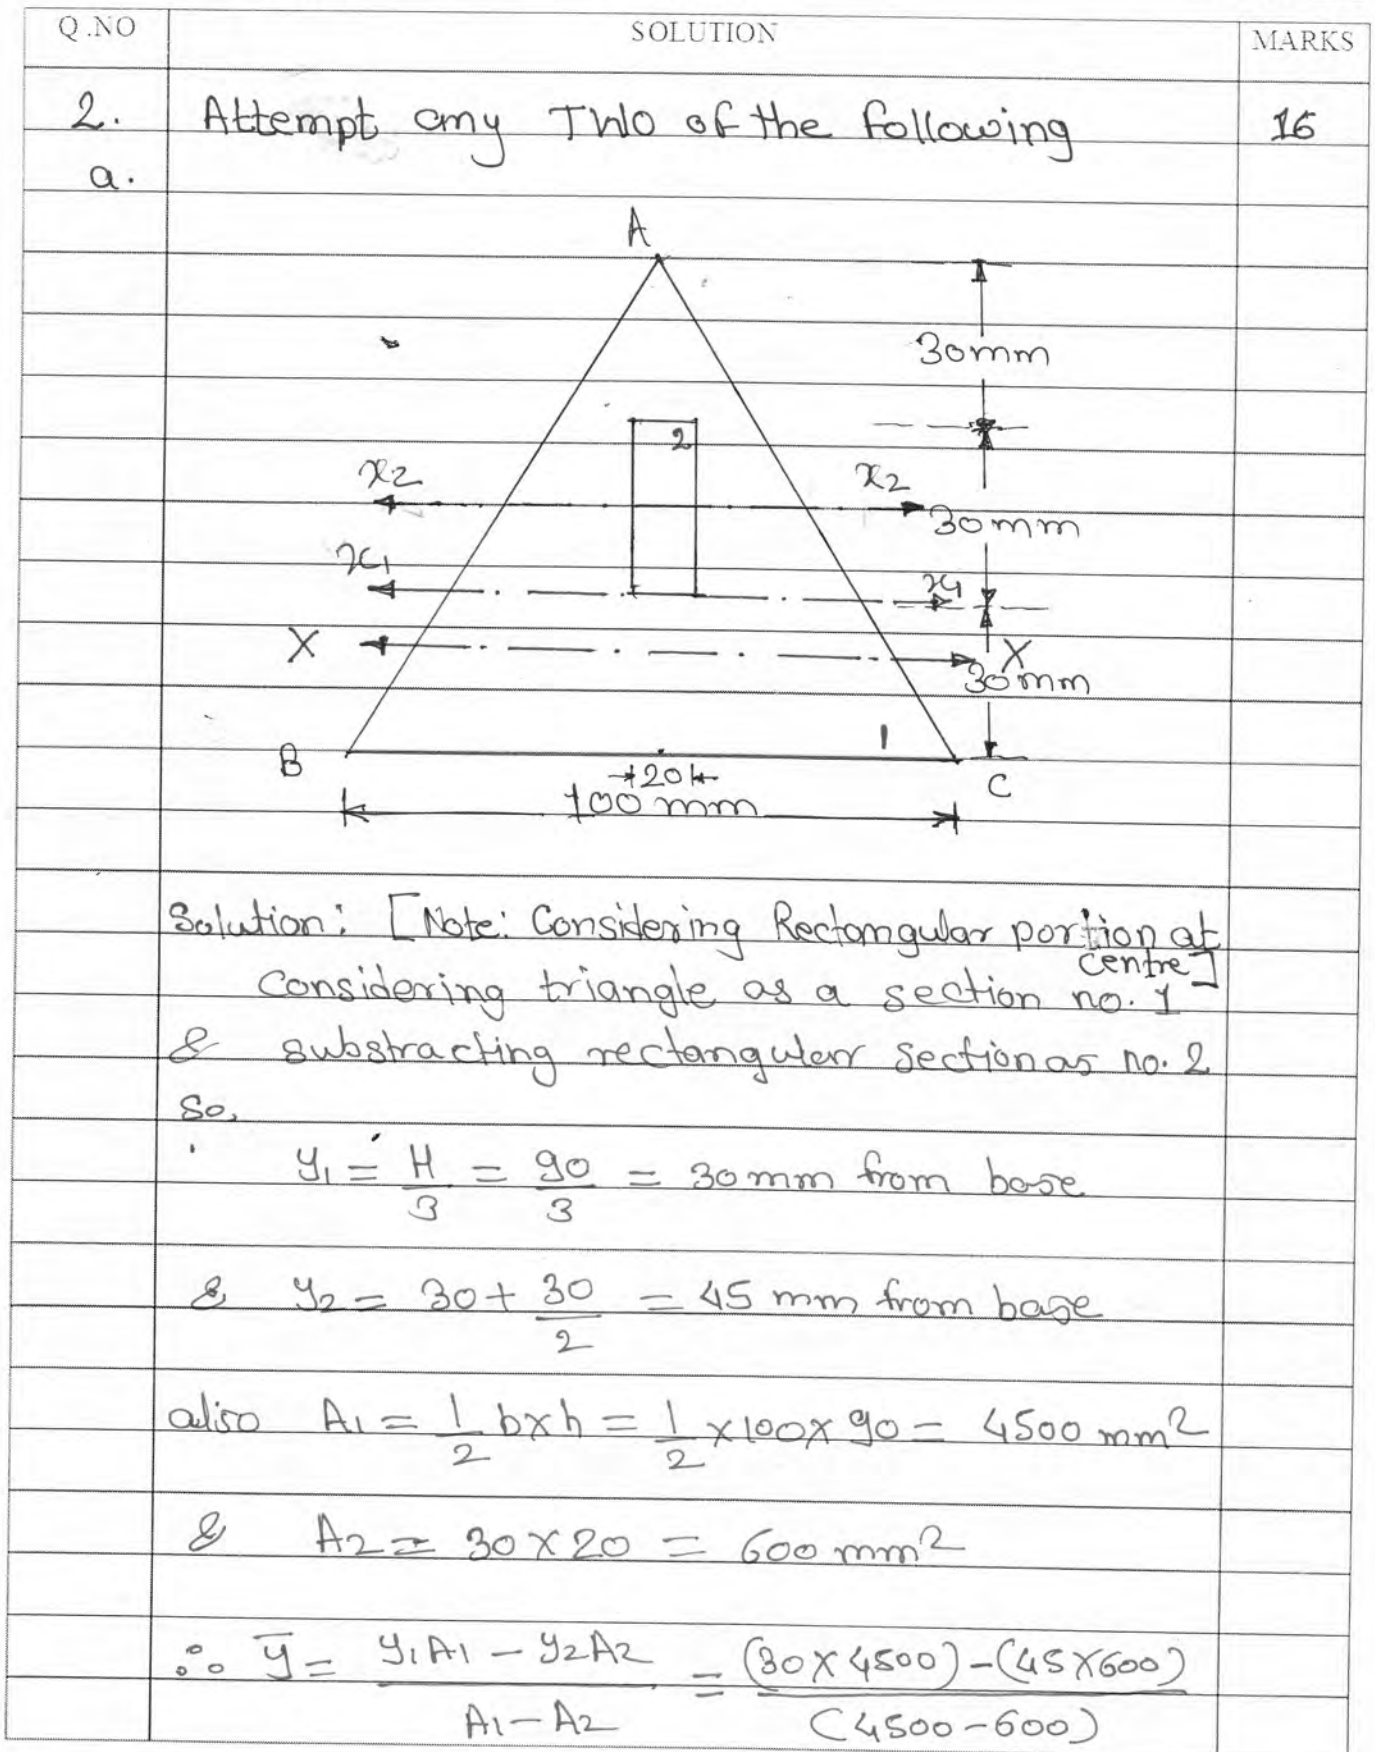 Q.NO SOLUTION MARKS
2. Attempt any TWO of the following 16
a.
A
30mm
2
x2 x2
30mm
x1 x1
X X
30mm
1
B C
20
100mm
Solution: [Note: Considering Rectangular portion at
centre]
Considering triangle as a section no. 1
& substracting rectangular section as no. 2
so,
y1 = H/3 = 90/3 = 30mm from base
& y2 = 30 + 30/2 = 45 mm from base
also A1 = 1/2 b×h = 1/2 ×100×90 = 4500 mm²
& A2 = 30×20 = 600 mm²
∴ ȳ = y1A1 - y2A2 / A1-A2 = (30×4500)-(45×600) / (4500-600)